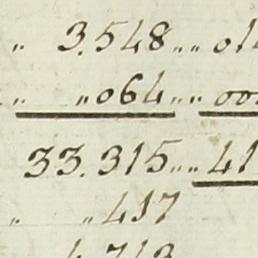 „ 3.548 „„ 014
„ „064 „„ 00
33.315 „„ 41
„ „417
4.713